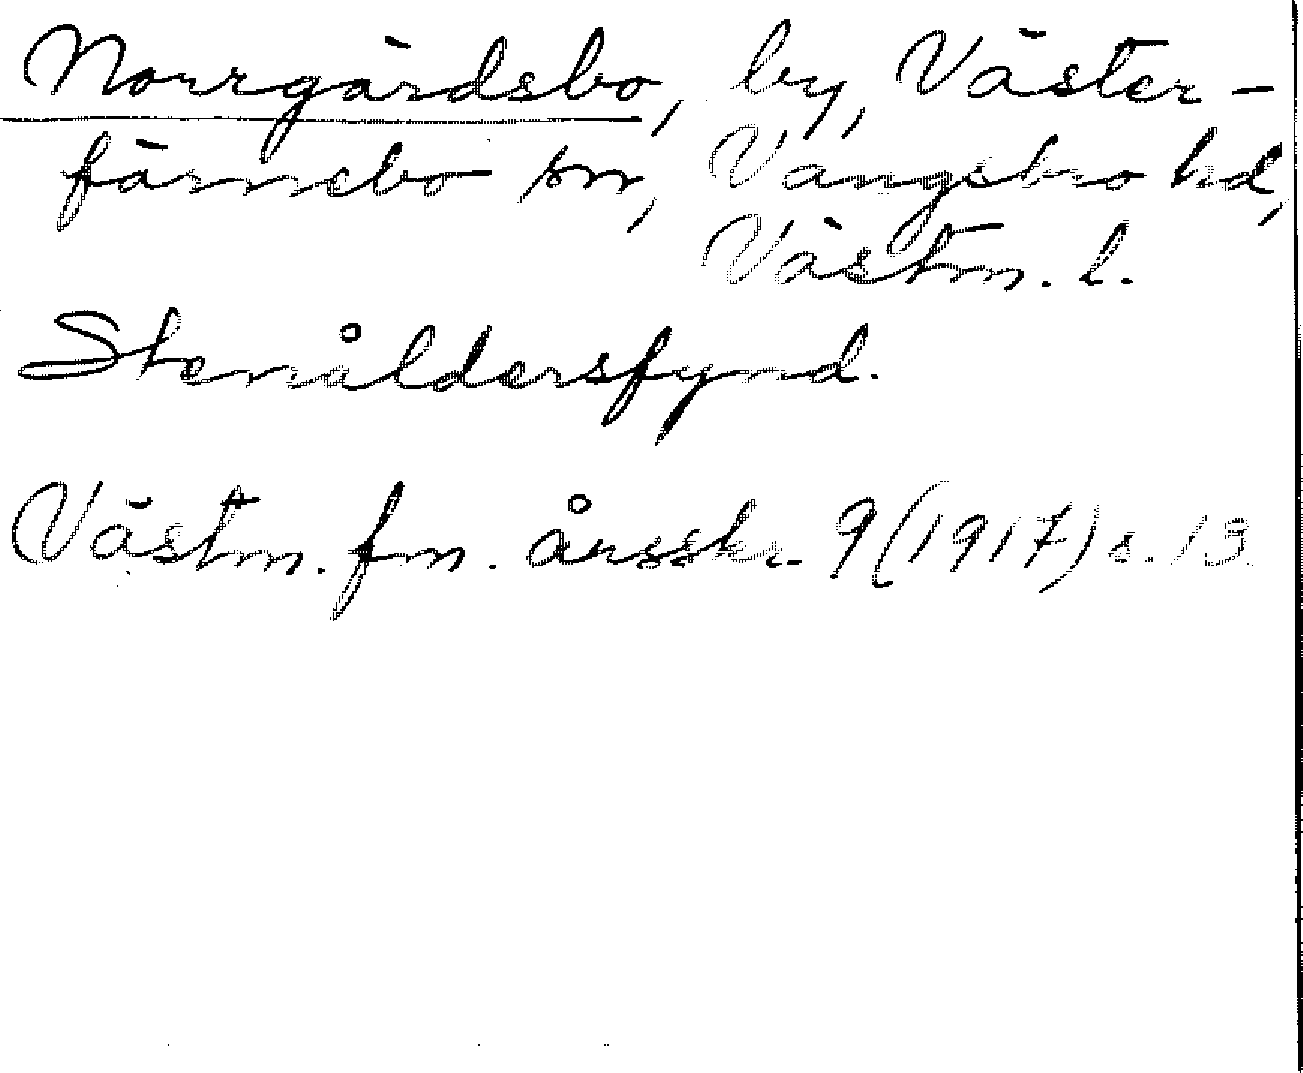 Norrgärdsbo, by, Väster-
färnebo sn, Vangsbro hd,
Västm. l.
Stenåldersfynd.
Västm. fm. årsskr. 9 (1917) s. 13.